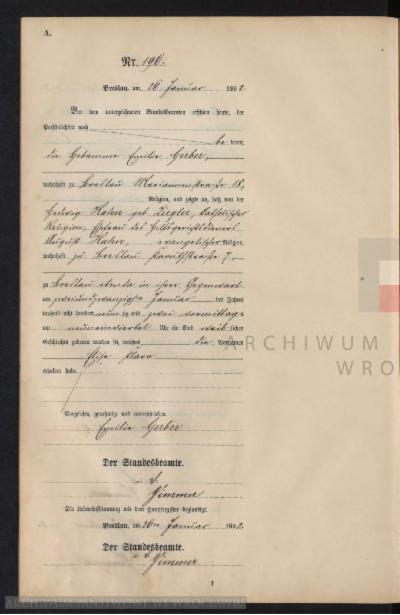 A.
Nr. 196.
Breslau, am 26. Januar 1892.
Vor dem unterzeichneten Standesbeamten erschien heute, der
Persönlichkeit nach
be kannt,
die Hebamme Emilie Gerber,
wohnhaft zu Breslau Mariannenstraße 18,
Religion, und zeigte an, daß von der
Hedwig Hahn geb. Ziegler, katholischer
Religion, Ehefrau des
August Hahn, evangelischer Religion,
wohnhaft zu Breslau 7,
zu Breslau in ihrer Gegenwart
am zweiundzwanzigsten Januar des Jahres
tausend acht hundert neunzig und zwei vormittags
um Uhr ein Kind weib licher
Geschlechts geboren worden sei, welches die Vornamen
Elise Klara
erhalten habe.
Vorgelesen, genehmigt und unterschrieben
Emilie Gerber
Der Standesbeamte.
Zimmer
Die Uebereinstimmung mit dem Hauptregister beglaubigt.
Breslau, am 26ten Januar 1892.
Der Standesbeamte.
Zimmer
1
ARCHIWUM
WRO
ARCHIWUM PAŃSTWOWE WE WROCŁAWIU